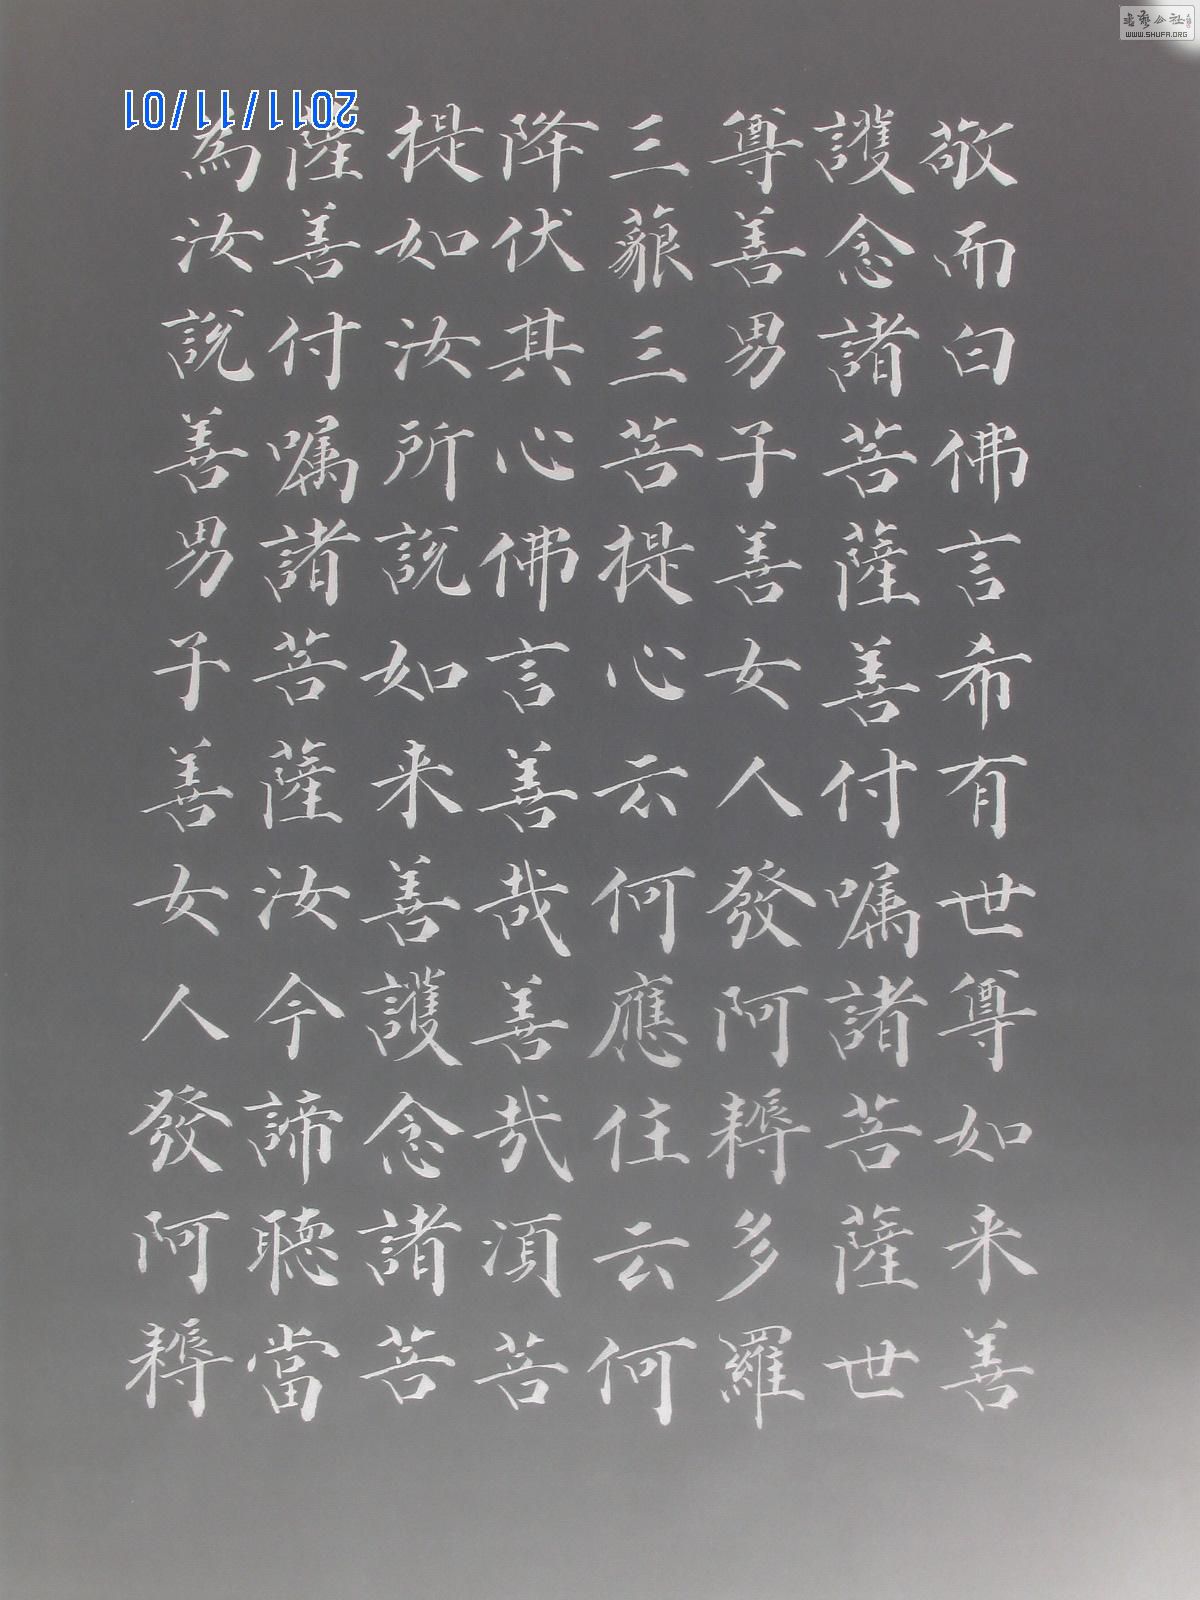 敬而白佛言希有世尊如来善
護念諸菩薩善付嘱諸菩薩世
尊善男子善女人發阿耨多羅
三藐三菩提心云何應住云何
降伏其心佛言善哉善哉湏菩
提如汝所說如来善護念諸菩
薩善付嘱諸菩薩汝今諦聴當
為汝說善男子善女人發阿耨
2011/11/01
书艺公社
WWW.SHUFA.ORG